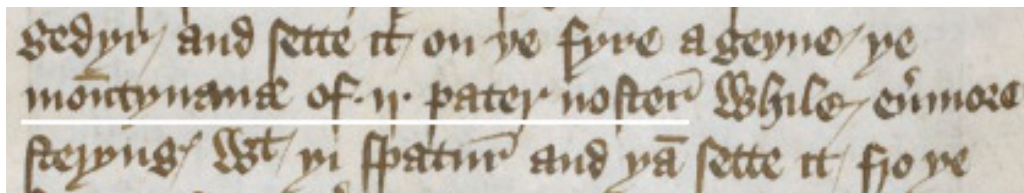 gedyr and sette it on ye fyre a geyne ye
mōtynance of .ii. pater noster While eu̾more
steryng wt yi spatur and yā sette it fro ye